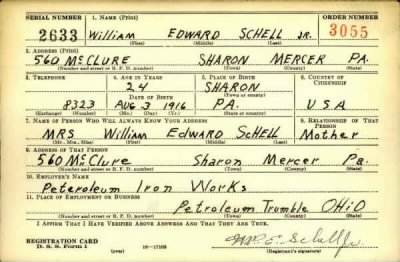 SERIAL NUMBER 1. NAME (Print) ORDER NUMBER
2633 William EDWARD SCHELL JR. 3055
(First) (Middle) (Last)
2. ADDRESS (Print)
560 McCLURE SHARON MERCER PA.
(Number and street or R. F. D. number) (Town) (County) (State)
3. TELEPHONE 4. AGE IN YEARS 5. PLACE OF BIRTH 6. COUNTRY OF CITIZENSHIP
24 SHARON
DATE OF BIRTH (Town or county)
8323 AUG 3 1916 PA. USA
(Exchange) (Number) (Mo.) (Day) (Yr.) (State or country)
7. NAME OF PERSON WHO WILL ALWAYS KNOW YOUR ADDRESS 8. RELATIONSHIP OF THAT PERSON
MRS William EDWARD SCHELL Mother
(Mr., Mrs., Miss) (First) (Middle) (Last)
9. ADDRESS OF THAT PERSON
560 McClure Sharon Mercer Pa.
(Number and street or R. F. D. number) (Town) (County) (State)
10. EMPLOYER'S NAME
Peteroleum Iron Works
11. PLACE OF EMPLOYMENT OR BUSINESS
Petroleum Trumble OHiO
(Number and street or R. F. D. number) (Town) (County) (State)
I AFFIRM THAT I HAVE VERIFIED ABOVE ANSWERS AND THAT THEY ARE TRUE.
REGISTRATION CARD
D. S. S. Form 1 (over) (Registrant's signature)